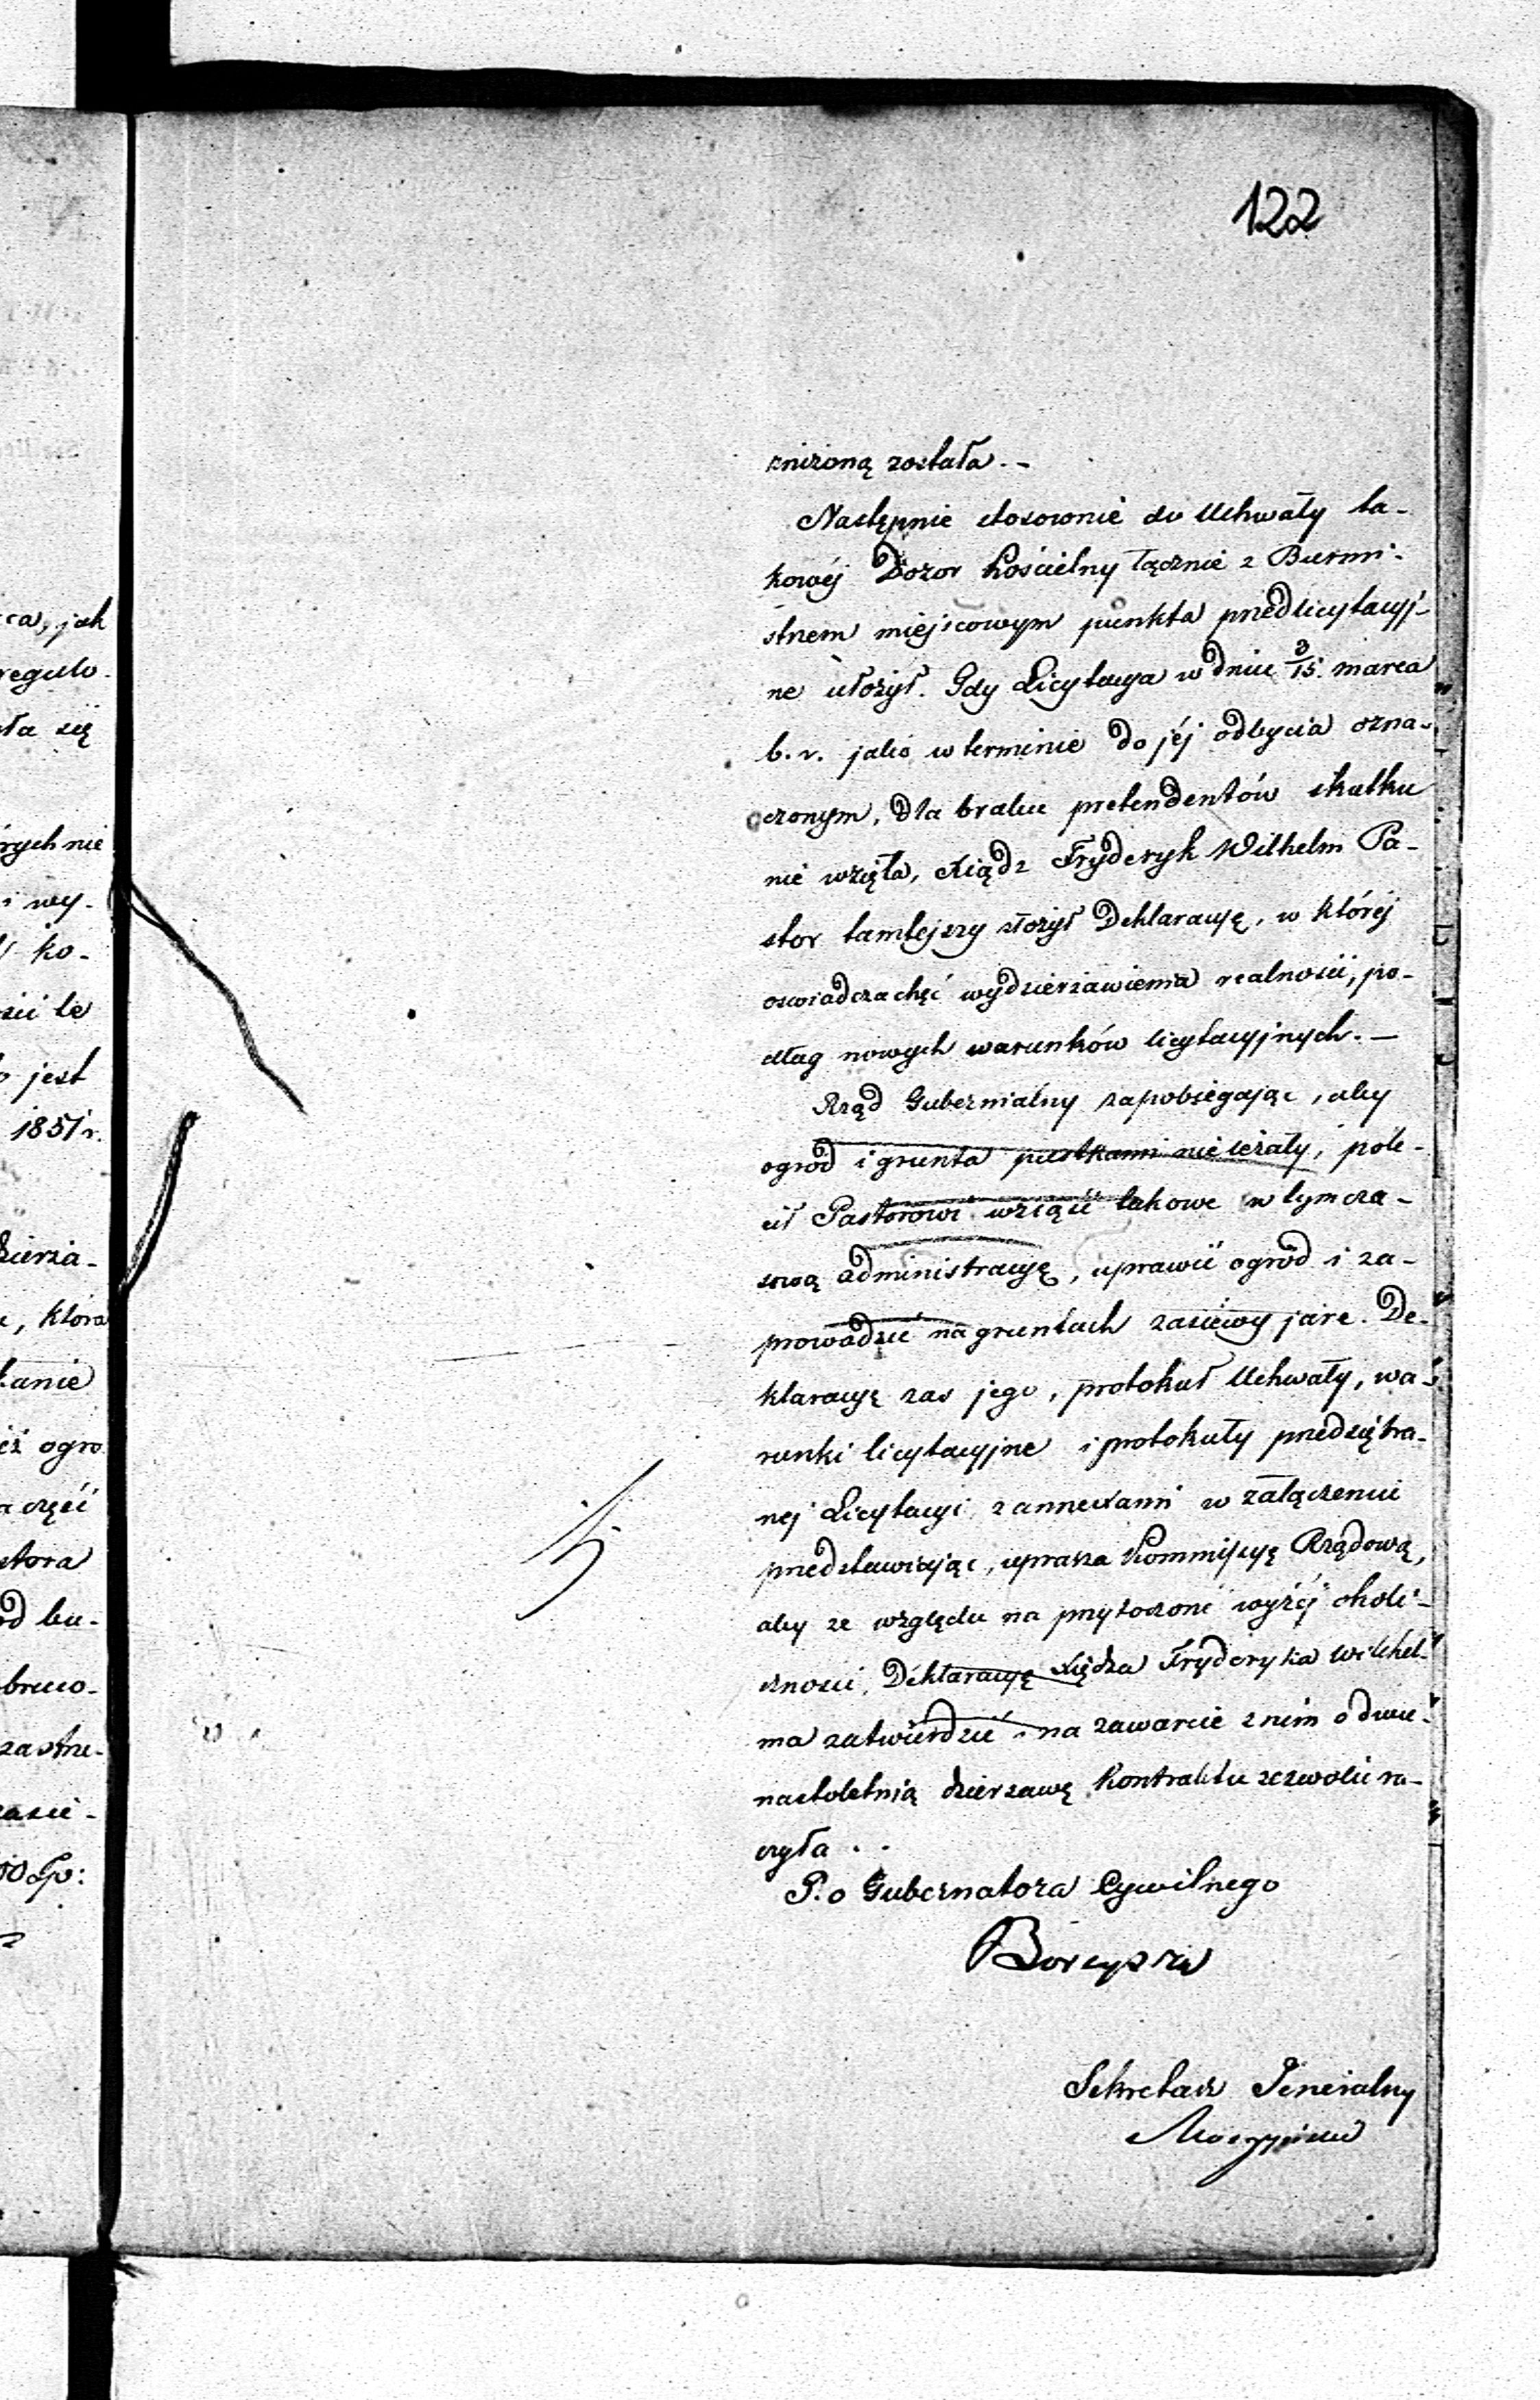 122
zniżoną została. -
Następnie stosownie do Uchwały ta-
kowéj Dozor Kościelny łącznie z Burmi-
strzem miejscowym punkta przedlicytacyj-
ne ułożył. Gdy Licytacya w dniu 3/15. marca
b. r. jako w terminie do jéj odbycia ozna-
czonym, dla braku pretendentów skutku
nie wzięła, Xiądz Fryderyk Wilhelm Pa-
stor tamtejszy złożył Deklaracyę, w któréj
oswiadcza chęć wydzierżawienia realności, po-
dług nowych warunków licytacyjnych. -
Rząd Gubernialny zapobiegając, aby
ogród i grunta pustkami nie leżały, pole-
cił Pastorowi wziąść takowe w tymcza-
sową administracyę, uprawić ogród i za-
prowadzić na gruntach zasiewy jare. De-
klaracyę zas jego, protokuł Uchwały, wa-
runki licytacyjne i protokuły przedsiębra-
nej Licytacyi z annexami w załączeniu
przedstawiając, uprasza Kommissyę Rządową,
aby ze względu na przytoczone wyżéj okoli-
cznosci, Deklaracyę Xiędza Fryderyka Wilhel-
ma zatwierdzić i na zawarcie z nim o dwu-
nastoletnią dzierzawę Kontraktu zezwolić ra-
czyła . .
P. o Gubernatora Cywilnego
Sekretarz Jeneralny
ca, jak
regulo-
ła się
rych nie
i wy-
ko-
ści te
jest
1851 r.
dzierża-
, która
kanie
eż ogro
a część
stora
od bu-
bruco-
zastrze-
zasie-